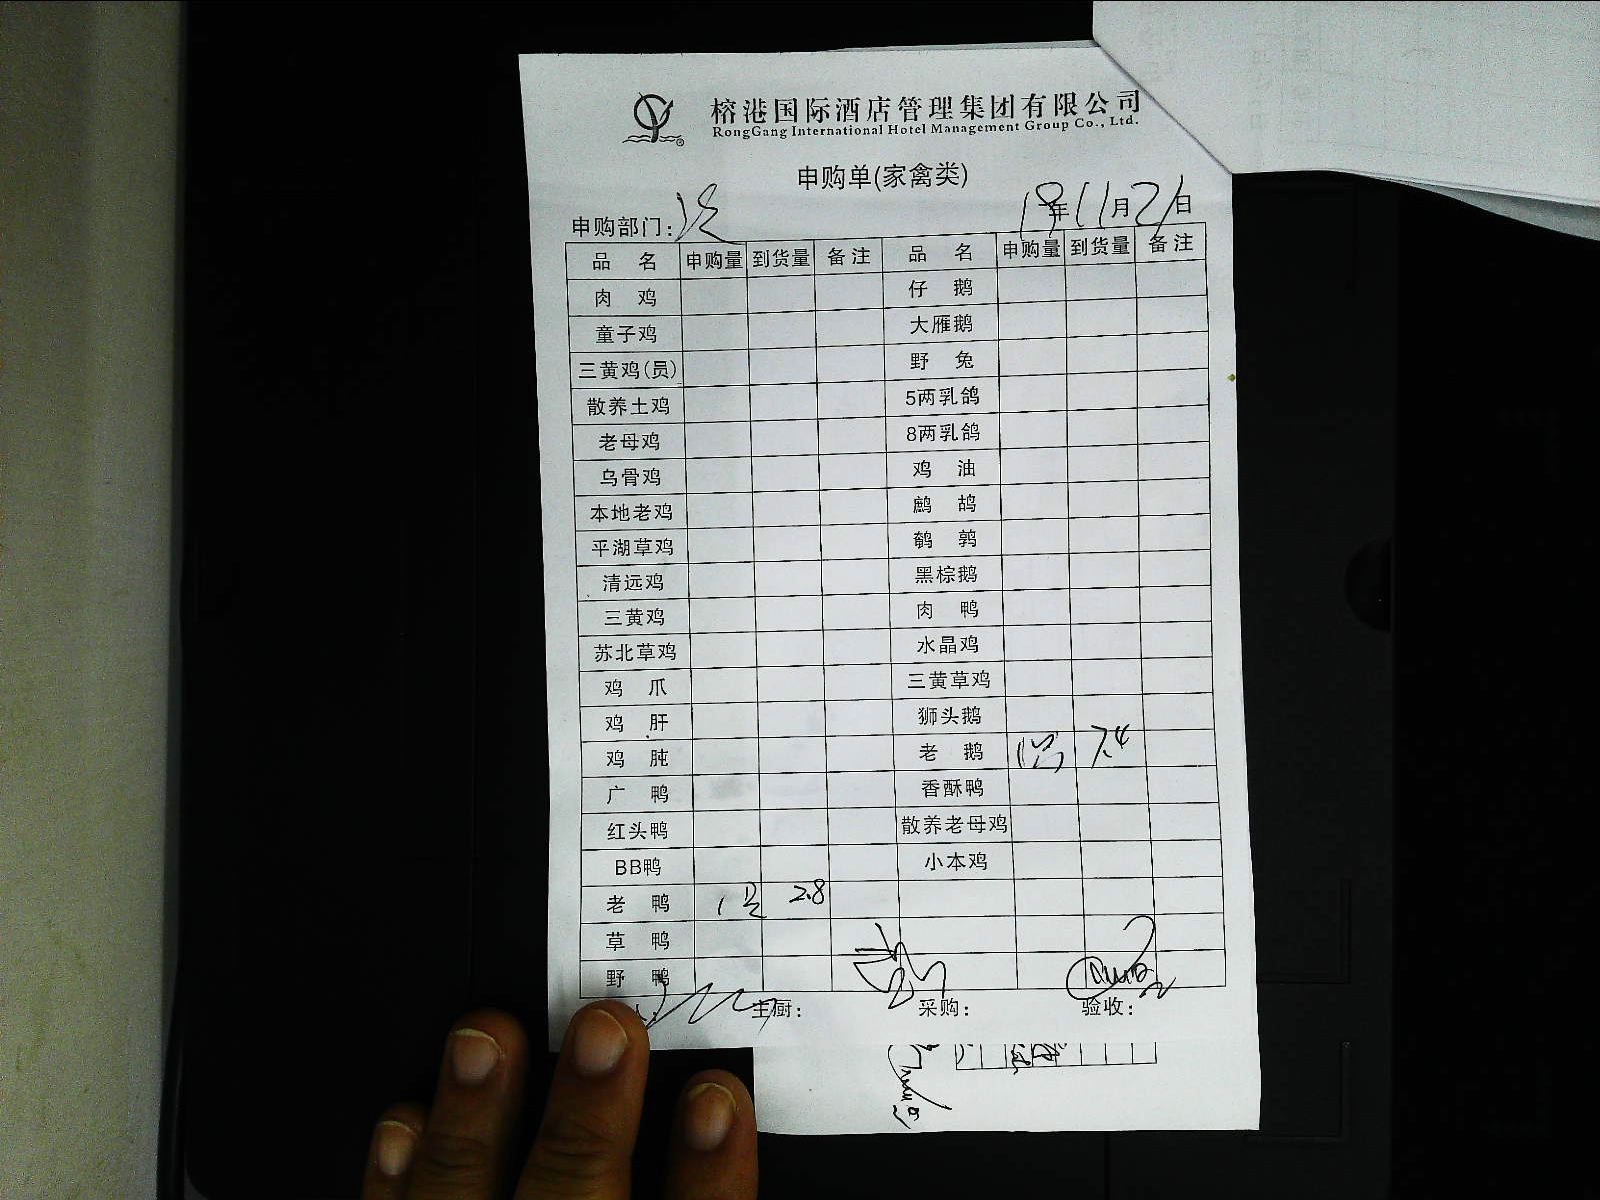 榕港国际酒店管理集团有限公司
RongGang International Hotel Management Group Co., Ltd.
申购单(家禽类)
申购部门: 18年11月21日
品名 申购量 到货量 备注 品名 申购量 到货量 备注
肉鸡 仔鹅
童子鸡 大雁鹅
三黄鸡(员) 野兔
散养土鸡 5两乳鸽
老母鸡 8两乳鸽
乌骨鸡 鸡油
本地老鸡 鹧鸪
平湖草鸡 鹌鹑
清远鸡 黑棕鹅
三黄鸡 肉鸭
苏北草鸡 水晶鸡
鸡爪 三黄草鸡
鸡肝 狮头鹅
鸡肫 老鹅 7.4
广鸭 香酥鸭
红头鸭 散养老母鸡
BB鸭 小本鸡
老鸭 1只 2.8
草鸭
野鸭
人: 主厨: 采购: 验收: